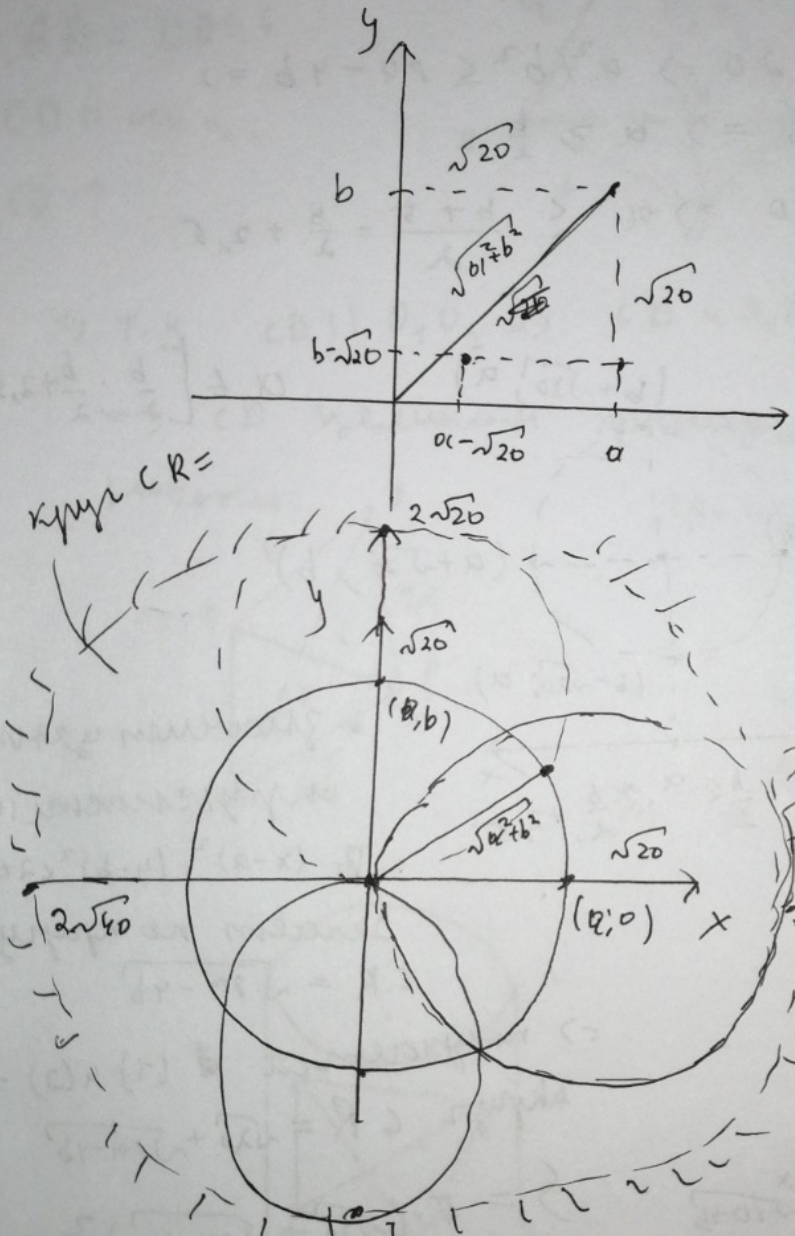 y
√20
b
√a²+b²
√20
b-√20
a-√20
a
круг с R=
2√20
y
√20
(a,b)
√a²+b²
√20
2√40
(a;0)
x